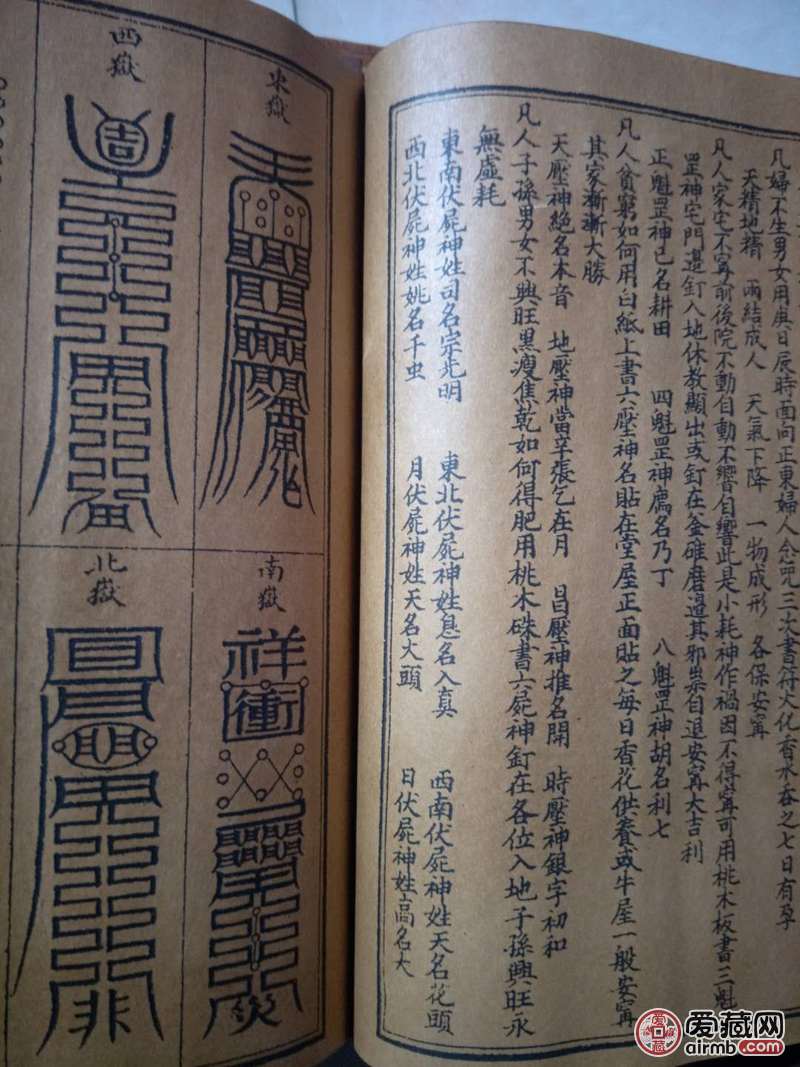 凡婦不生男女用庚日辰時面向正東婦人念咒三次書符火化香水吞之七日有孕
天精地精　兩結成人　天氣下降　一物成形　各保安寧
凡人家宅不寧前後院不動自動不響自響此是小耗神作禍因不得寧可用桃木板書三魁
罡神宅門邊釘入地休教顯出或釘在釜碓磨邊其邪祟自退安寧大吉利
正魁罡神已名耕田　四魁罡神鷹名乃丁　八魁罡神胡名利七
凡人貧窮如何用白紙上書六壓神名貼在堂屋正面貼之每日香花供養或牛屋一般安寧
其家漸漸大勝
天壓神絕名本音　地壓神當辛張乞在月　昌壓神推名開　時壓神銀字初和
凡人子孫男女不興旺黑瘦焦乾如何得肥用桃木硃書六屍神釘在各位入地子孫興旺永
無虛耗
東南伏屍神姓司名宗光明　東北伏屍神姓息名入真　西南伏屍神姓天名花頭
西北伏屍神姓姚名千虫　月伏屍神姓天名大頭　日伏屍神姓高名大
東嶽
西嶽
南嶽
祥
衝
北嶽
明
爱藏网
airmb.com